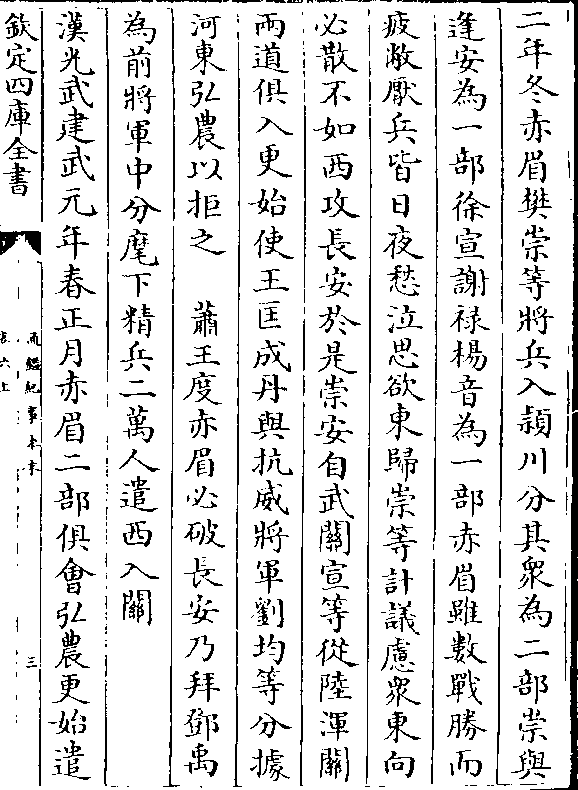 二年冬赤眉樊崇等將兵入潁川分其衆為二部崇與
逢安為一部徐宣謝禄楊音為一部赤眉雖數戰勝而
疲敝厭兵皆日夜愁泣思欲東歸崇等計議慮衆東向
必散不如西攻長安於是崇安自武關宣等從陸渾關
兩道俱入更始使王匡成丹與抗威將軍劉均等分據
河東弘農以拒之　蕭王度赤眉必破長安乃拜鄧禹
為前將軍中分麾下精兵二萬人遣西入關
漢光武建武元年春正月赤眉二部俱會弘農更始遣
欽定四庫全書
通鑑紀事本末
卷六上
三